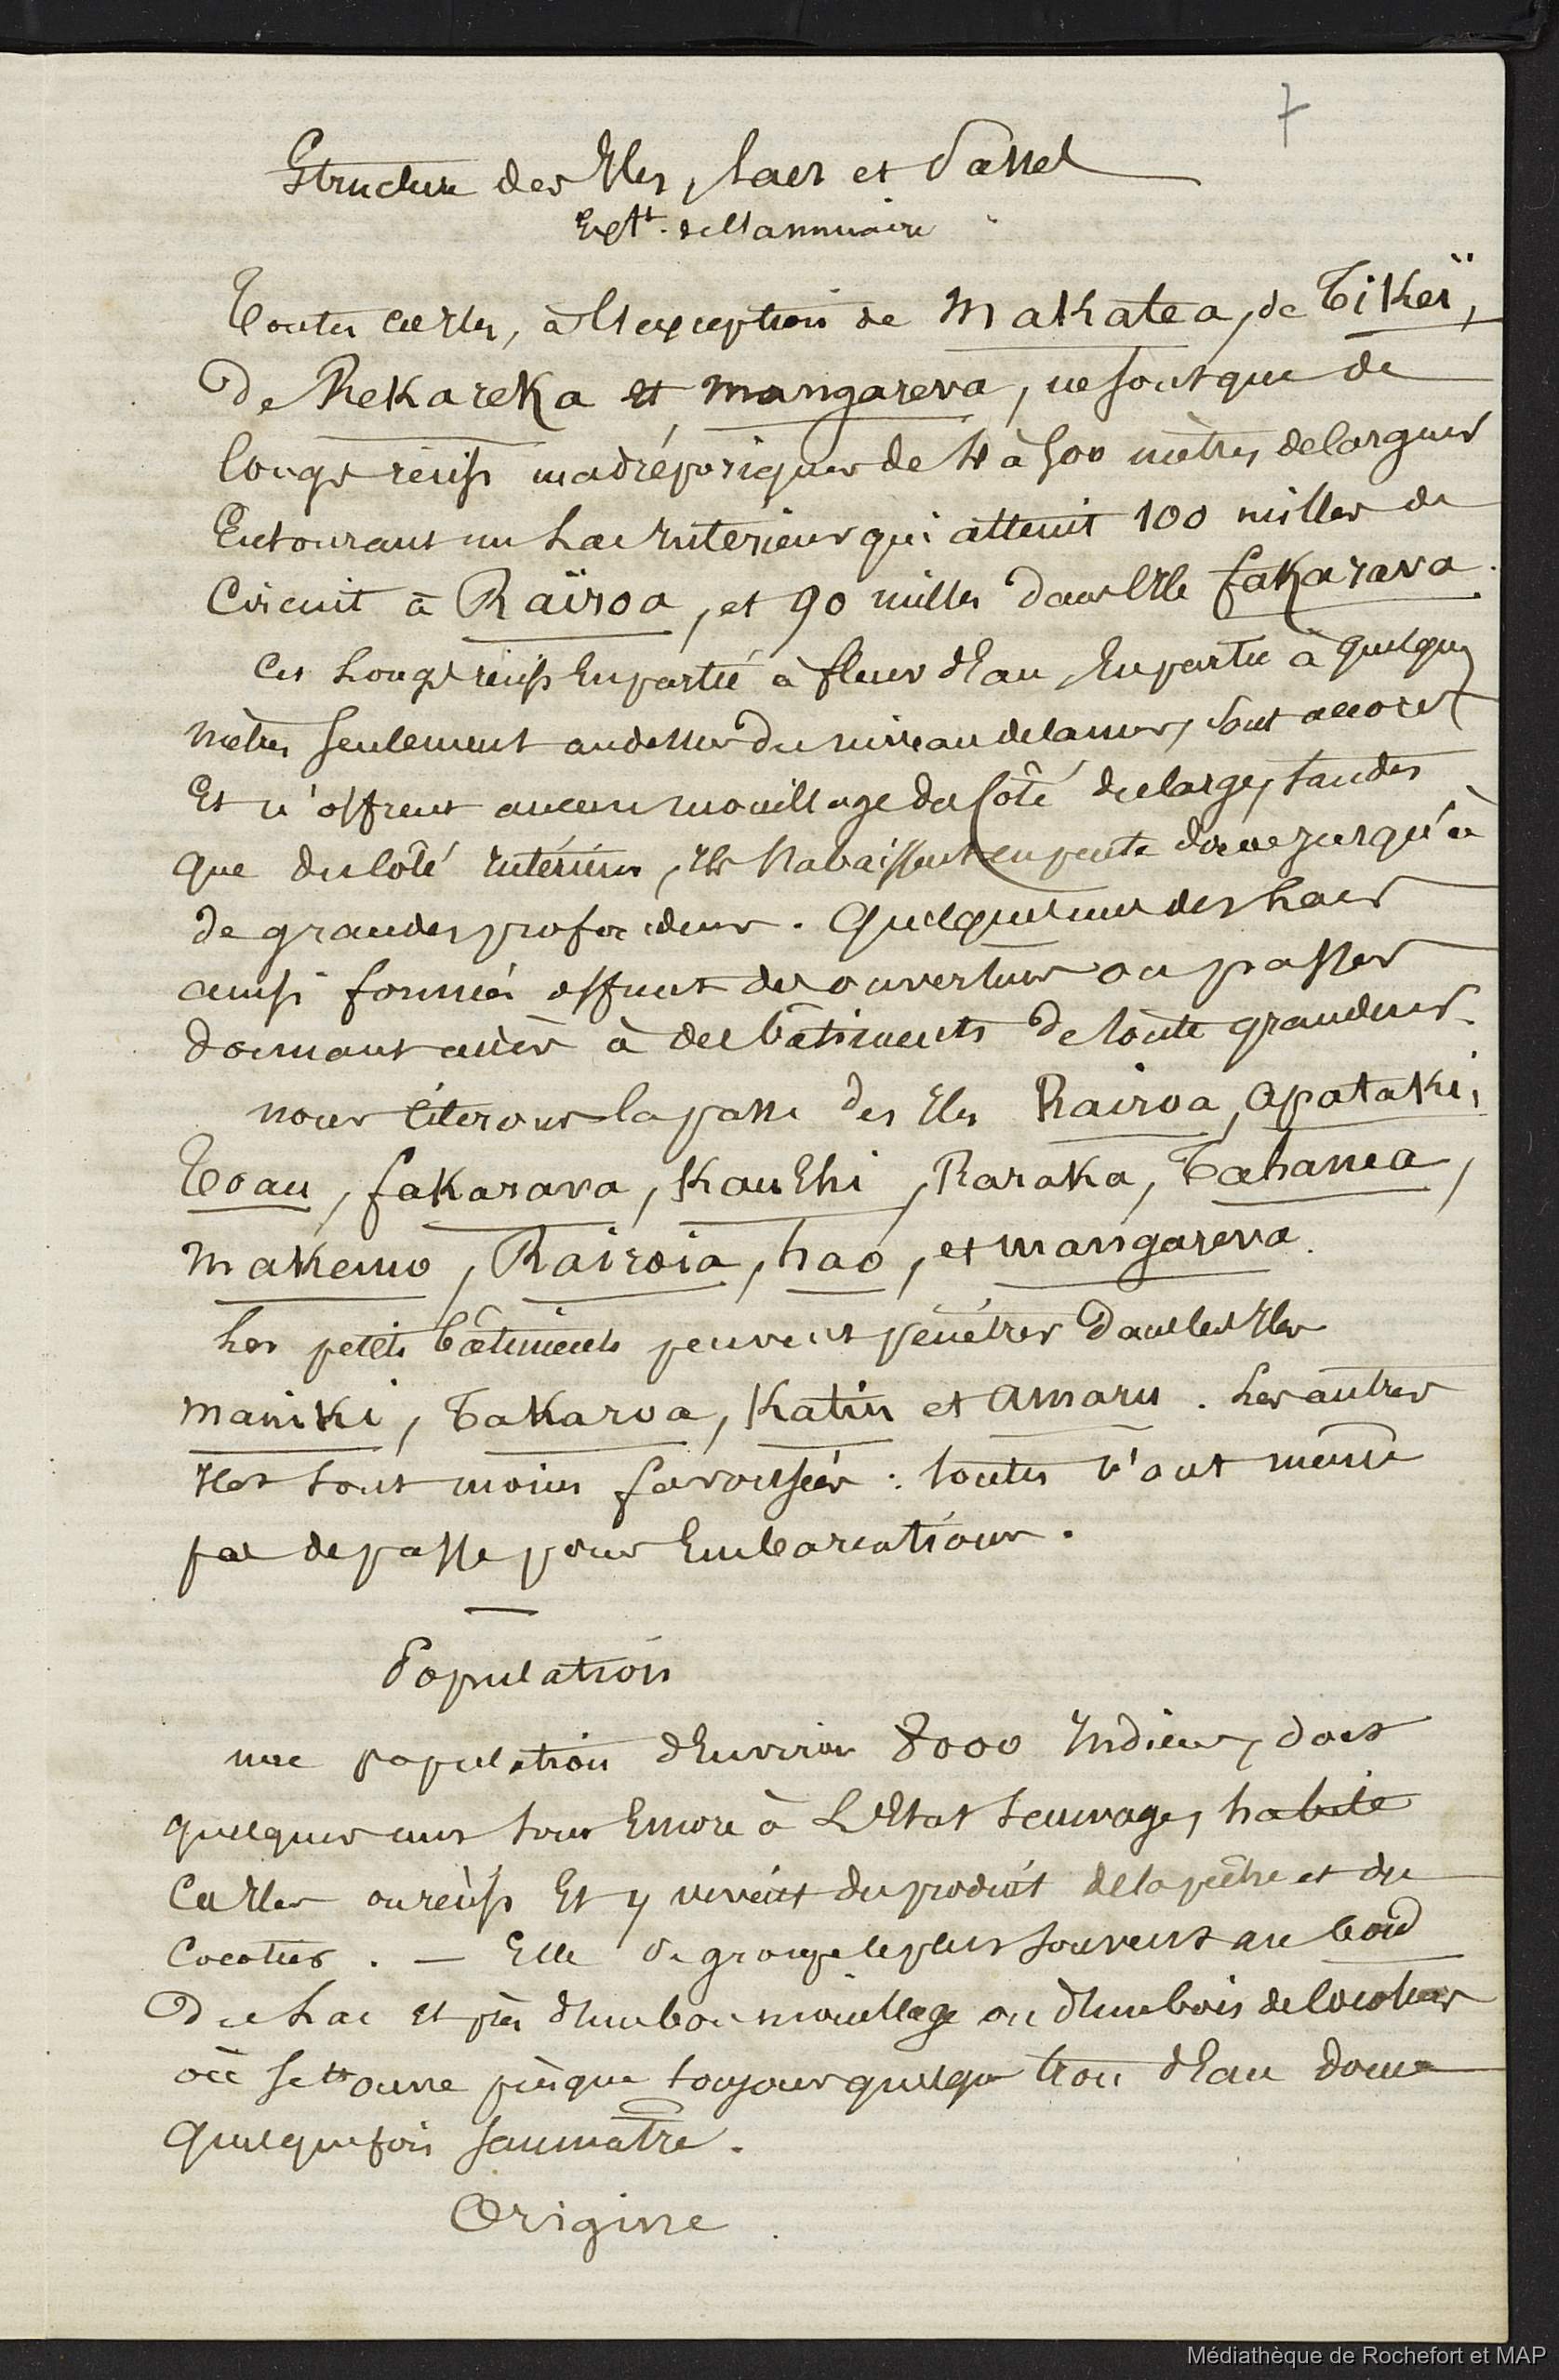 7
Structure des Iles, Lacs et Passes
Extt. de l'annuaire
Toutes ces Iles, à l'exception de Makatea, de Tikeï,
de Rekareka et Mangareva, ne sont que de
longs récifs madréporiques de 4 à 500 mètres de largeur
Entourant un Lac Intérieur qui atteint 100 milles de
Circuit à Raïroa, et 90 milles dans l'Ile fakarava.
Ces Longs récifs En partie à fleur d'Eau, En partie à quelques
mètres seulement au dessus du niveau de la mer, sont accores
Et n'offrent aucun mouillage du Côté du large, tandis
que du Côté Intérieur, Ils s'abaissent en pente douce jusqu'à
de grandes profondeurs. Quelques uns des Lacs
ainsi formés offrent des ouvertures ou passes
donnant accès à des bâtiments de toute grandeur.
nous Citerons la passe des Iles Rairoa, Apataki,
Toau, fakarava, KauEhi, Raraka, Tahanea,
Makemo, Rairoia, hao, et mangareva.
Les petits bâtiments peuvent pénétrer dans les Iles
Maniki, Takaroa, Katiu et Amaru. Les autres
Iles sont moins favorisées : toutes n'ont même
pas de passe pour Embarcations.
Population
une population d'Environ 8000 Indiens, dont
quelques uns sont Encore à L'Etat sauvage, habite
Ces Iles ou récifs Et y vivent du produit de la pêche et du
Cocotier. — Elle se groupe le plus souvent au bord
Du Lac et près d'un bon mouillage ou d'un bois de Cocotiers
où se trouve presque toujours quelque trou d'Eau douce
quelquefois saumâtre.
Origine.
Médiathèque de Rochefort et MAP